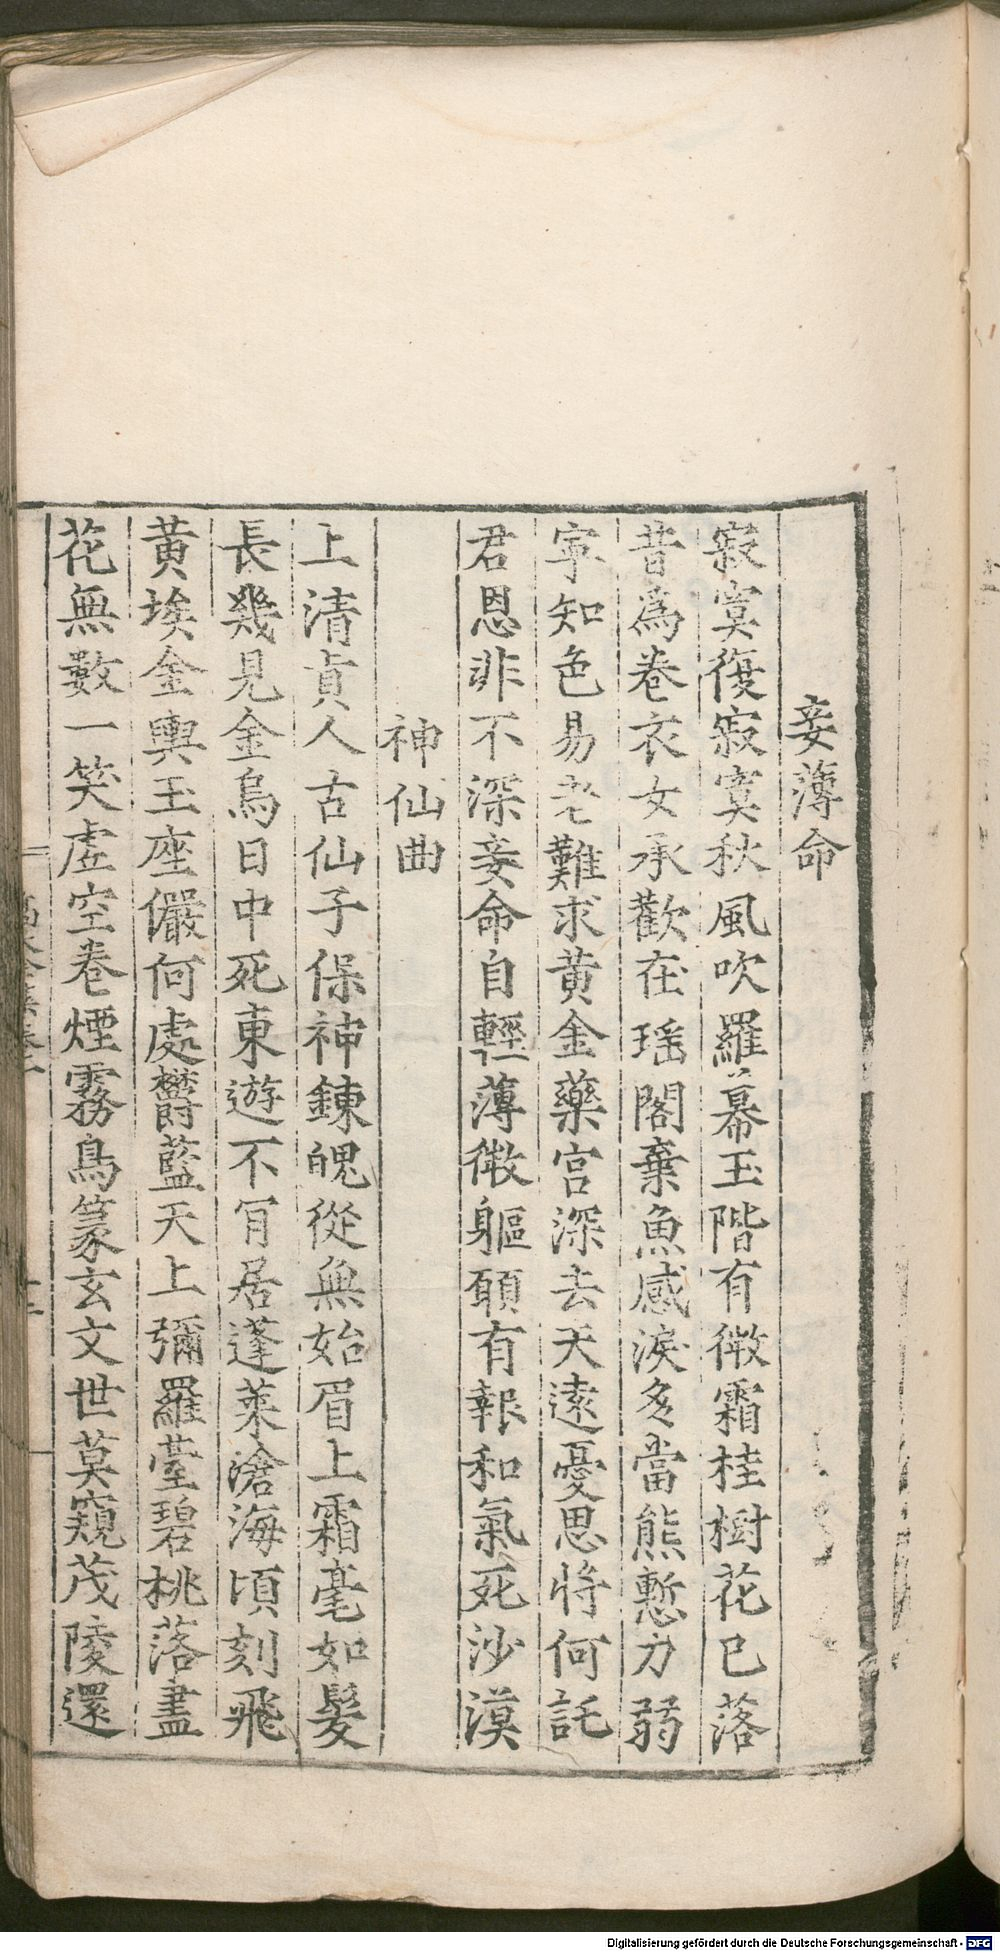 妾薄命
寂寞復寂寞秋風吹羅幕玉階有微霜桂樹花已落
昔爲卷衣女承歡在瑶閣棄魚感淚多當熊慙力弱
寜知色易老難求黄金藥宫深去天遠憂思將何託
君恩非不深妾命自輕薄微軀願有報和氣死沙漠
神仙曲
上清貞人古仙子保神錬魄從無始眉上霜毫如髮
長幾見金烏日中死東遊不肎居蓬萊滄海頃刻飛
黄埃金輿玉座儼何處欝藍天上彌羅臺碧桃落盡
花無數一笑虚空卷煙霧鳥篆玄文世莫窺茂陵還
Digitalisierung gefördert durch die Deutsche Forschungsgemeinschaft - DFG